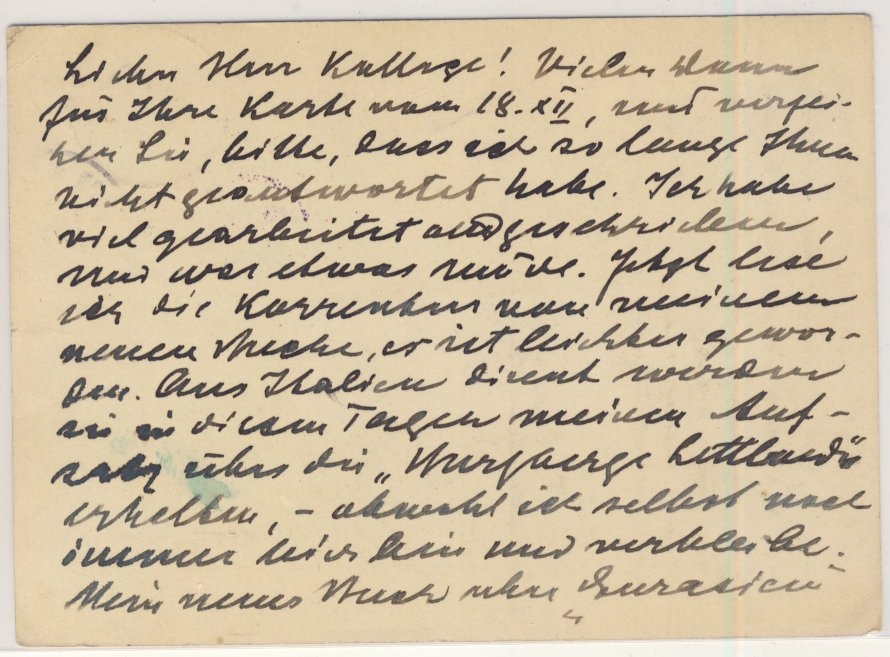 Lieber Herr Kollege! Vielen Dank
für Ihre Karte vom 18.XII, und verzei-
hen Sie, bitte, dass ich so lange Ihnen
nicht geantwortet habe. Ich habe
viel gearbeitet und geschrieben,
und war etwas müde. Jetzt lese
ich die Korrektur von meinem
neuen Buche, es ist leichter gewor-
den. Aus Italien direkt werden
sie in diesen Tagen meinen Auf-
satz über die „Burgberge Lettlands"
erhalten, – obwohl ich selbst noch
immer hier bin und verbleibe.
Mein neues Buch über „Eurasien"